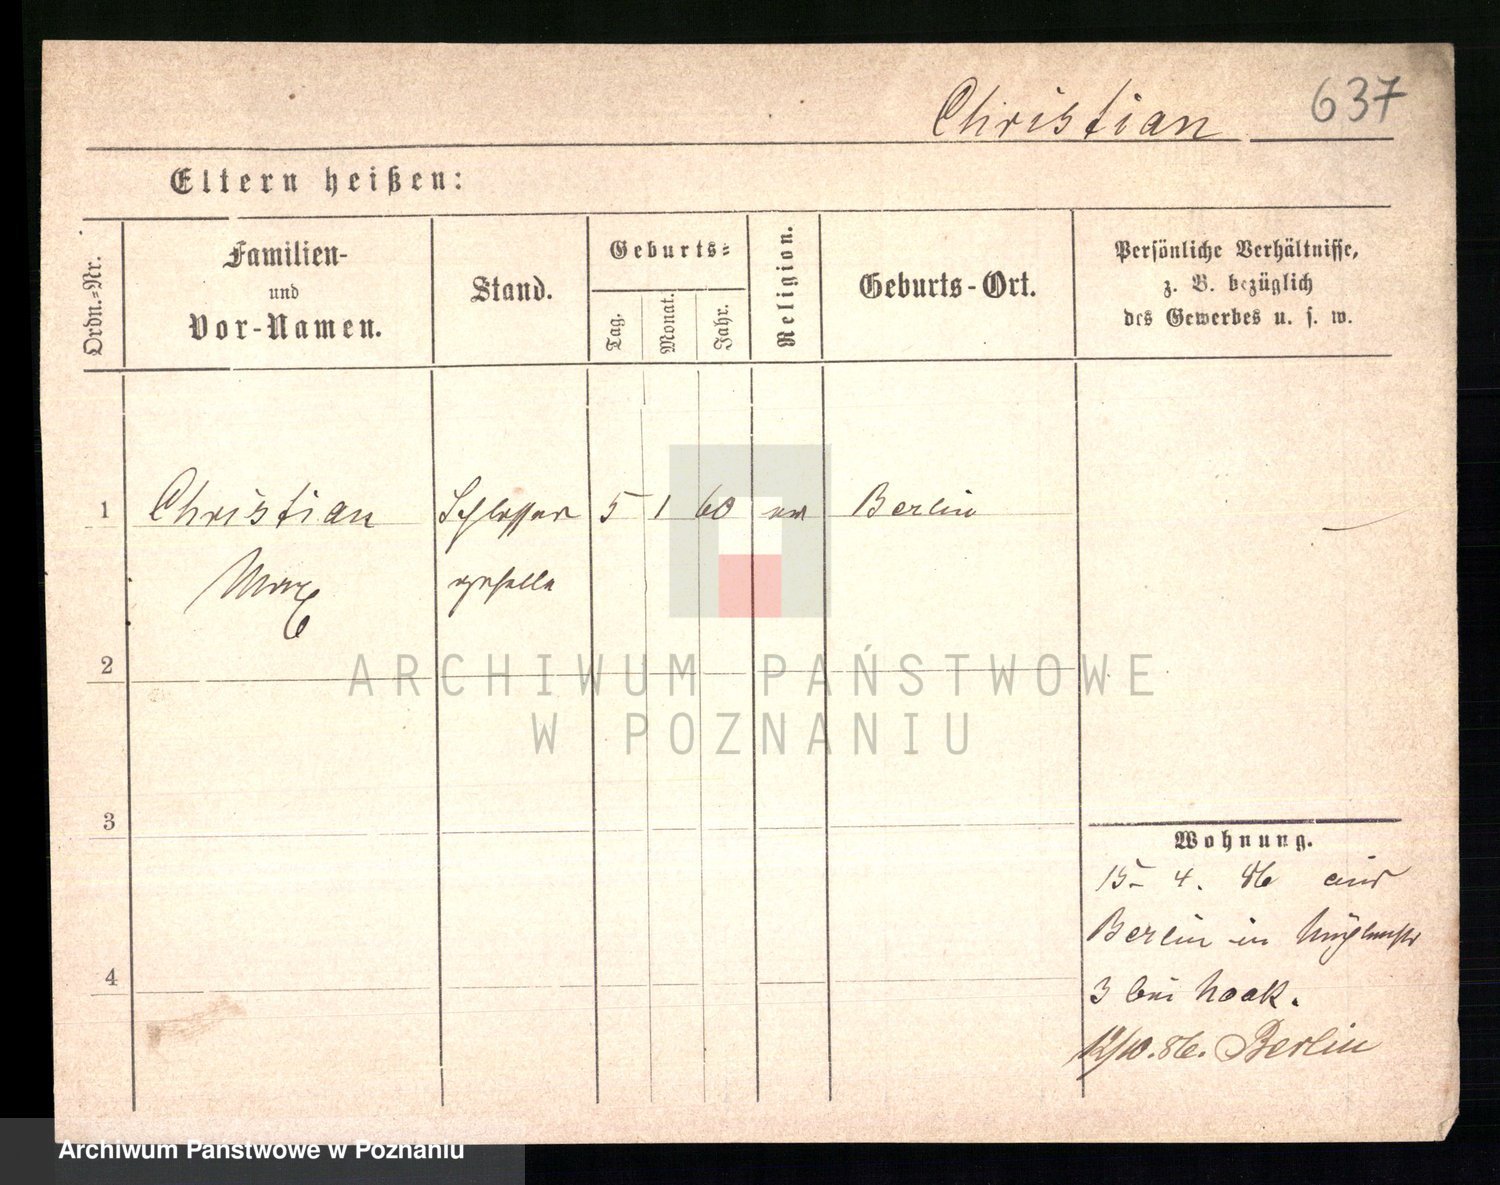 Christian 637
Eltern heißen:
Ordn.-Nr.
Familien-
und
Vor-Namen.
Stand.
Geburts-
Tag.
Monat.
Jahr.
Religion.
Geburts-Ort.
Persönliche Verhältnisse,
z. B. bezüglich
des Gewerbes u. s. w.
1 Christian Schlosser 5 1 60 ev Berlin
Max geselle
2
3
4
Wohnung.
15. 4. 86 aus
Berlin in
3 bei Noak.
12/10. 86. Berlin
ARCHIWUM PAŃSTWOWE
W POZNANIU
Archiwum Państwowe w Poznaniu